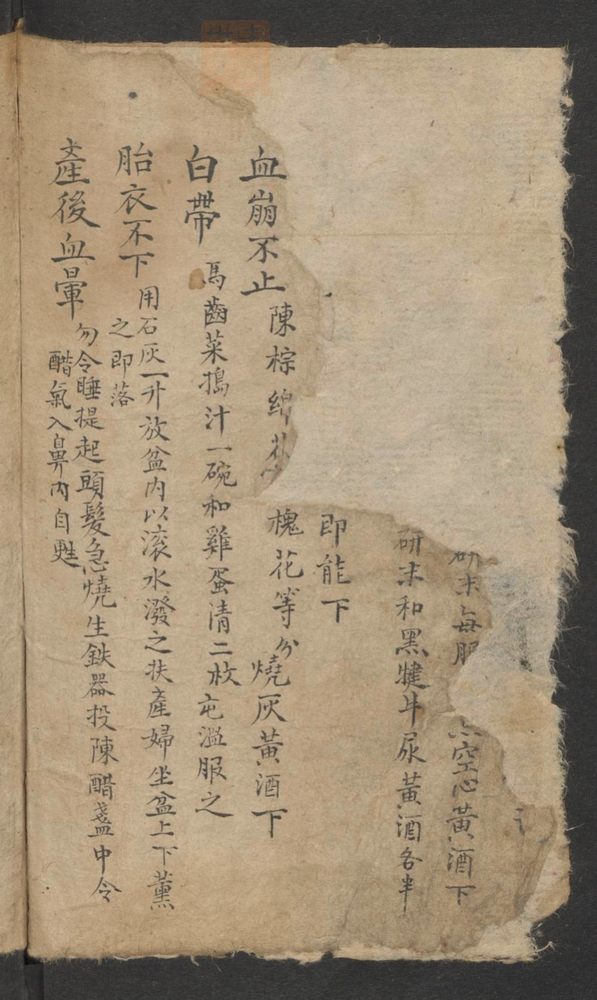 研末每服 空心黃酒下
研末和黑犍牛尿黃酒各半
即能下
血崩不止 陳棕綿花 槐花等分燒灰黃酒下
白帶 馬齒菜搗汁一碗和雞蛋清二枚屯溫服之
胎衣不下 用石灰一升放盆內以滚水潑之扶產婦坐盆上下薰
之即落
產後血暈 勿令睡提起頭髮急燒生鉄器投陳醋盞中令
醋氣入鼻內自甦